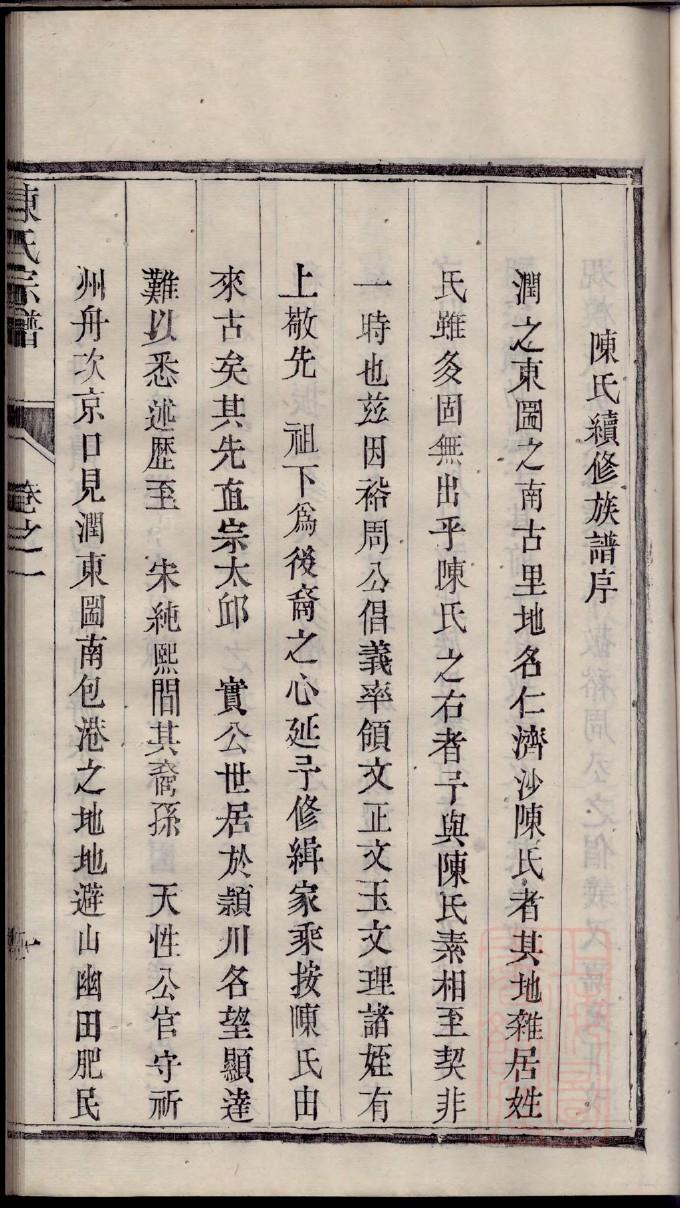 陳氏續修族譜序
潤之東圌之南古里地名仁濟沙陳氏者其地雜居姓
氏雖多固無出乎陳氏之右者予與陳氏素相至契非
一時也兹因裕周公倡義率領文正文玉文理諸姪有
上敬先　祖下為後裔之心延予修緝家乘按陳氏由
來古矣其先直宗太邱　寔公世居於潁川名望顯達
難以悉述歷至　宋純熙間其裔孫　天性公官守祈
州舟次京口見潤東圌南包港之地地避山幽田肥民
陳氏宗譜　卷之一